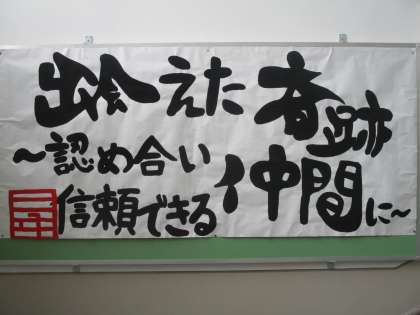 出会えた奇跡
~認め合い
信頼できる仲間に~
三年